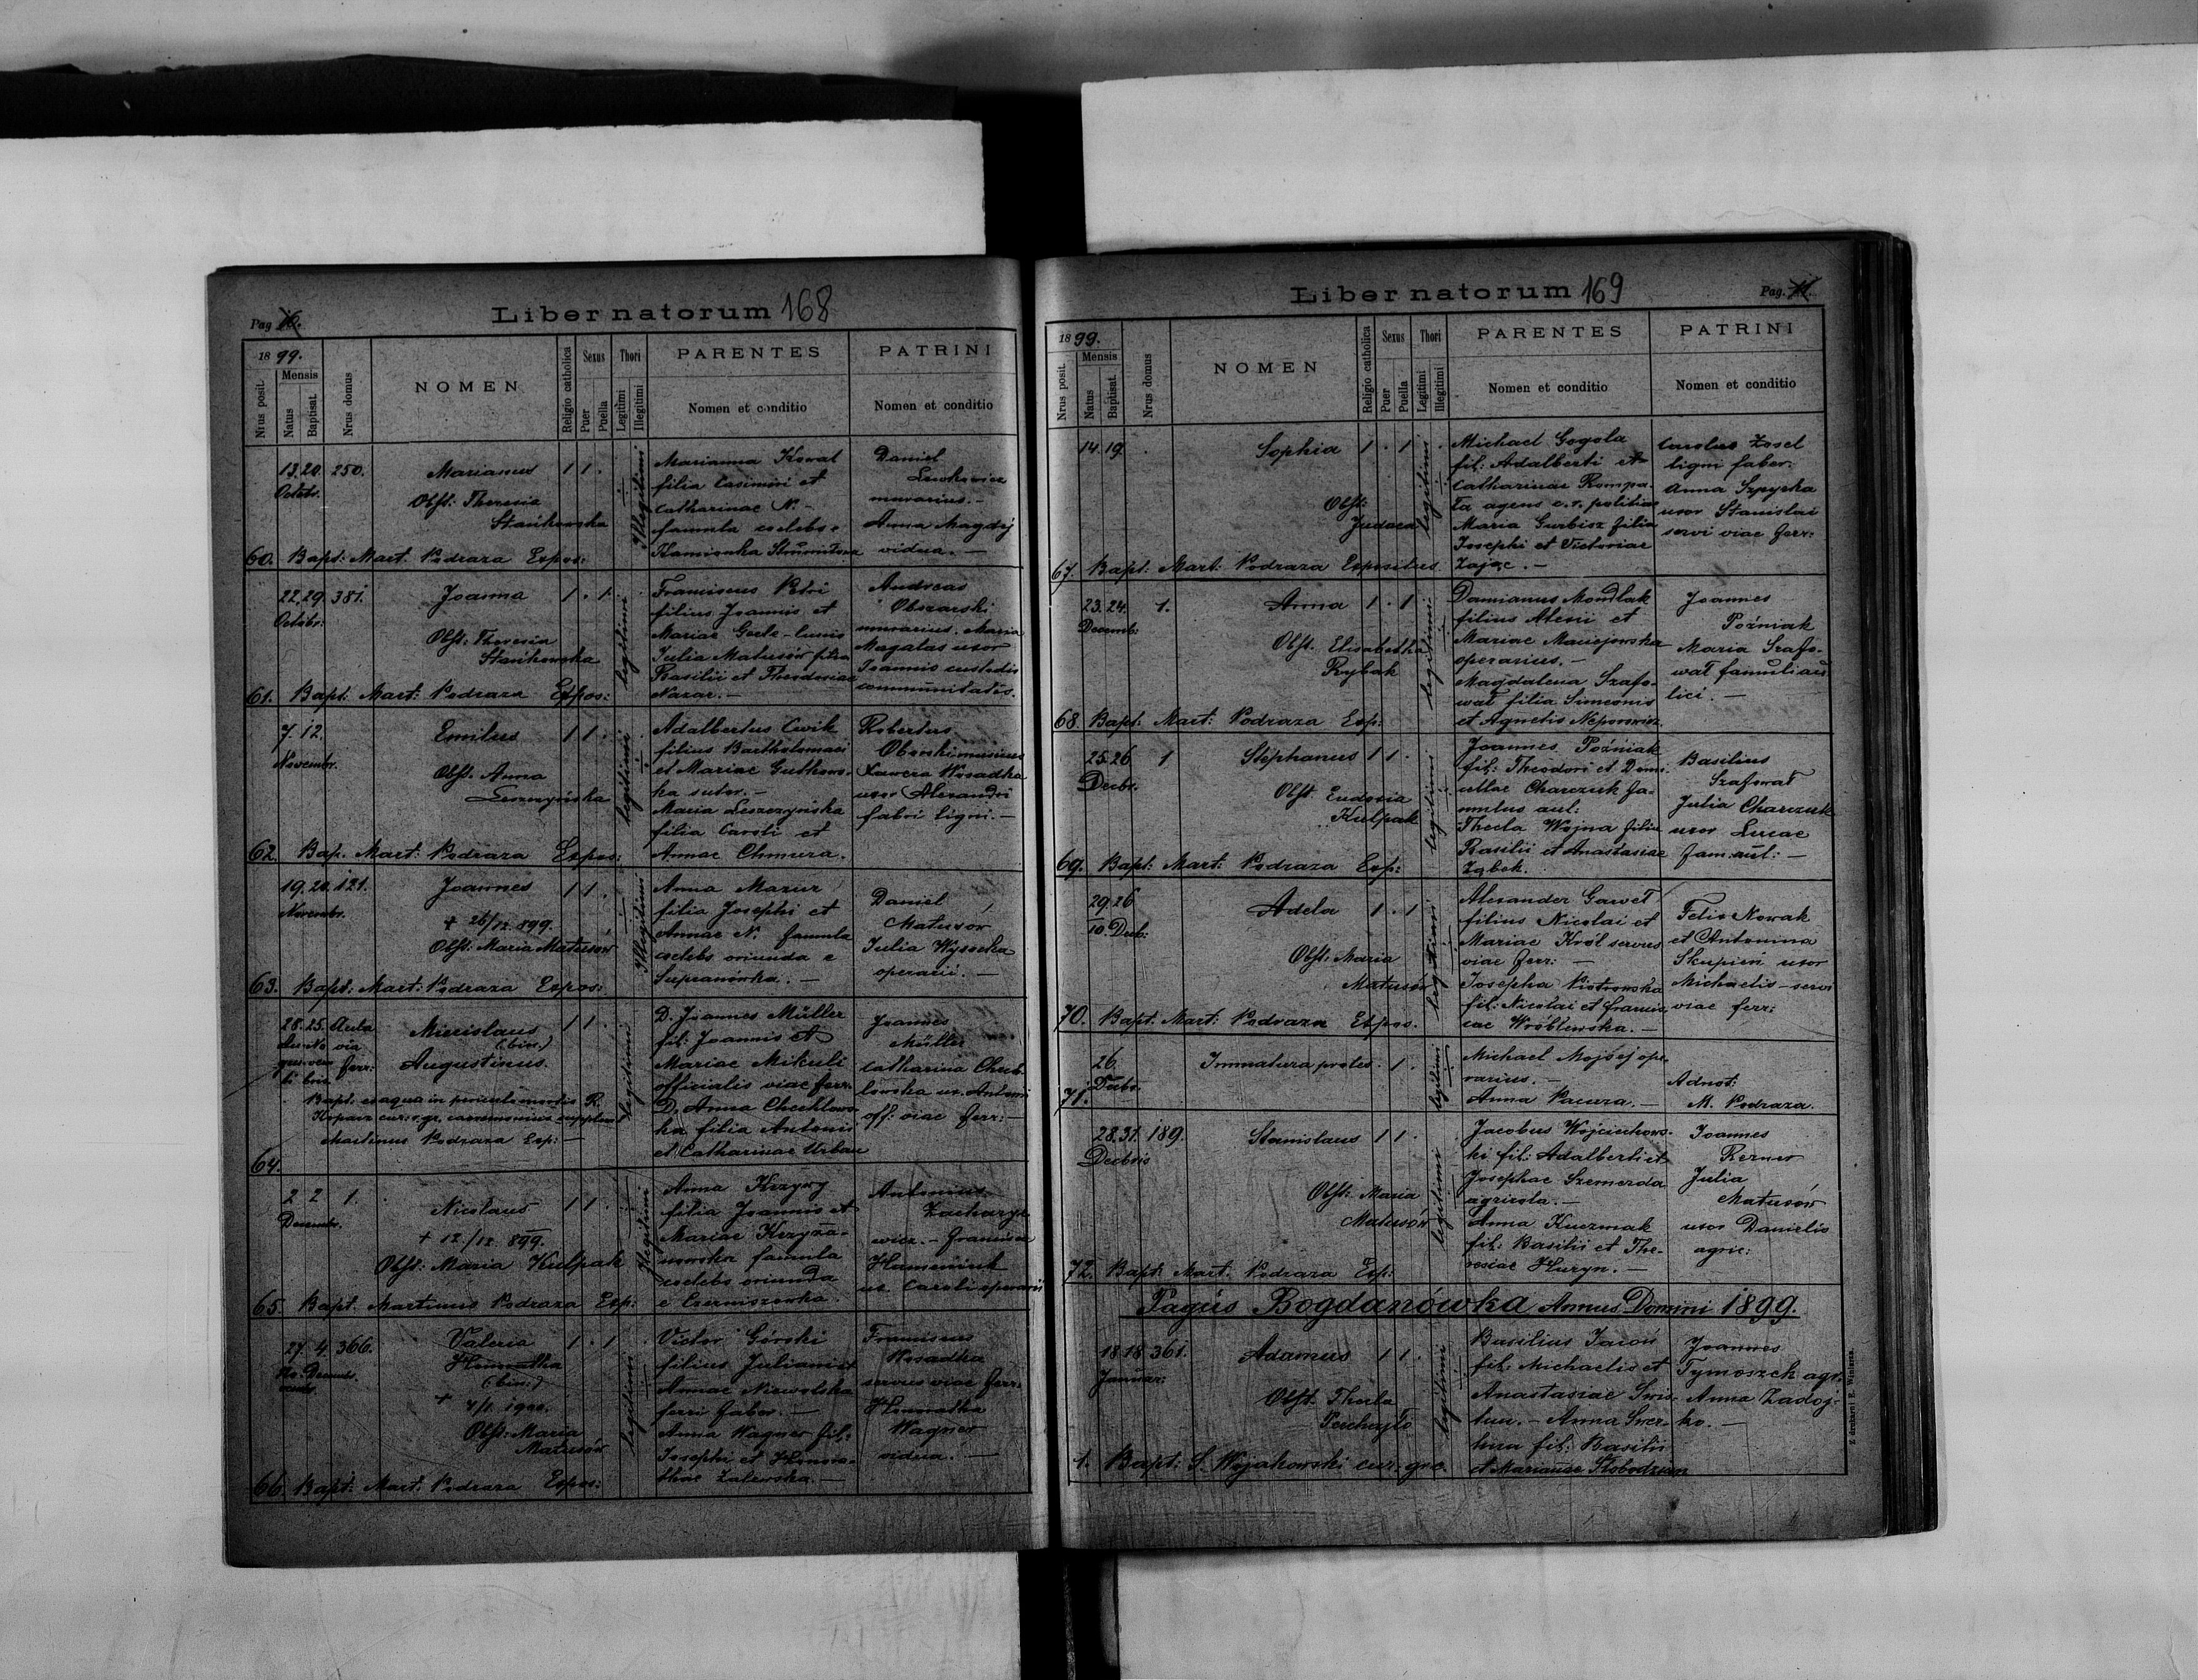 Pag. 10.
Liber natorum 168
1899.
Nrus posit.
Mensis
Natus
Baptisat.
Nrus domus
NOMEN
Religio catholica
Sexus
Puer
Puella
Thori
Legitimi
Illegitimi
PARENTES
Nomen et conditio
PATRINI
Nomen et conditio
13. 20. 250.
Octobr.
Marianus 1 1 .
Obst: Theresia
Stańkowska
Illegitimi
Marianna Kowal
filia Casimiri et
Catharinae N. -
famula coelebs e
Kamionka Strumiłowa
Daniel
murarius. -
Anna Magdij
vidua. -
60. Bapt: Mart. Podraza Expos:
22. 29. 381.
Octobr:
Joanna 1 . 1.
Obst: Theresia
Stańkowska
legitimi
Franciscus Petri
filius Joannis et
Mariae
Julia Matusów filia
Basilii et Theodosiae
Nazar. -
Andreas
Obszarski
murarius. Maria
Magalas uxor
Joannis custodis
communitatis.
61. Bapt: Mart: Podraza Expos:
7. 12.
Novembr.
Emilus 1 1 .
Obst. Anna
Leszczyńska
legitimi
Adalbertus Cwik
filius Bartholomaei
et Mariae Gutkows-
ka sutor. -
Maria Leszczyńska
filia Caroli et
Annae Chmura.
Robertus
Xawera Wosadka
uxor Alexandri
fabri ligni. -
62. Bap. Mart: Podraza Expos:
19. 20. 121.
Novembr.
Joannes 1 1 .
+ 26/12 899.
Obst. Maria Matusów
Illegitimi
Anna Mazur
filia Josephi et
Annae N. famula
coelebs oriunda e
Supranówka. -
Daniel
Matusów
Julia Wysocka
operarii. -
63. Bapt: Mart: Podraza Expos:
28. 25. Aula
via
ferr:
Miecislaus
(bin.)
Augustinus.
1 1 .
legitimi
D. Joannes Müller
fil: Joannis et
Mariae Mikuli
officialis viae ferr.
D. Anna Chechlows-
ka filia Antonii
et Catharinae Urban
Joannes
Müller
Catharina Chech-
lowska ux. Antonii
off: viae ferr: -
Bapt. ex aqua in periculo mortis R.
Martinus Podraza Exp: -
64.
2 2 1.
Decembr.
Nicolaus 1 1 .
+ 12/12 899.
Obst: Maria Kulpak
Illegitimi
Anna Krzywy
filia Joannis et
Mariae Krzyża-
nowska famula
coelebs oriunda
e Czerniszowka.
Antonius
Zacharya-
wicz. - Francisca
ux Caroli operarii
65. Bapt. Martinus Podraza Exp:
27. 4. 366.
Decembr.
Valeria 1 . 1
Honoratha
(bin:)
+ 4/1. 1900.
Obst: Maria
Matusów
legitimi
Victor Górski
filius Juliani et
Annae Niewolska
ferri faber. -
Anna Wagner fil:
Josephi et Honora-
thae Zalewska. -
Franciscus
Wosadka
servus viae ferr:
Honoratha
Wagner
vidua. -
66. Bapt: Mart: Podraza Expos:
Liber natorum 169
Pag. 11.
1899.
Nrus posit.
Mensis
Natus
Baptisat.
Nrus domus
NOMEN
Religio catholica
Sexus
Puer
Puella
Thori
Legitimi
Illegitimi
PARENTES
Nomen et conditio
PATRINI
Nomen et conditio
14. 19. .
Sophia 1 . 1 .
Obst:
Judaea
legitimi
Michael Gogola
fil: Adalberti et
Catharinae Rompa-
ła agens c. r. politiae
Maria Gurbisz filia
Josephi et Victoriae
Zając. -
Carolus Zosel
ligni faber.
Anna Szpyrka
uxor Stanislai
servi viae ferr:
67. Bapt. Mart: Podraza Expositus.
23. 24. 1.
Decemb:
Anna 1 . 1
Obst. Elisabetha
Rybak
legitimi
Damianus Mondlak
filius Alexii et
Mariae Maciejowska
operarius. -
Magdalena Szafo-
wał filia Simeonis
et Agnetis
Joannes
Poźniak
Maria Szafo-
wał famuli au-
lici. -
68. Bapt: Mart: Podraza Exp:
25. 26 1
Decbr.
Stephanus 1 1 .
Obst. Eudoxia
Kulpak
legitimi
Joannes Poźniak
fil: Theodori et Dom-
Charczuk fa-
mulus aul:
Thecla Wojna filia
Basilii et Anastasiae
Ząbek.
Basilius
Szafował
Julia Charczuk
uxor Lucae
fam. aul: -
69. Bapt: Mart: Podraza Exp:
29. 26
10. Decb:
Adela 1 . 1
Obst: Maria
Matusów
legitimi
Alexander Gaweł
filius Nicolai et
Mariae Król servus
viae ferr: -
Josepha Piotrowska
fil: Nicolai et Francis-
cae Wróblewska. -
Felix Nowak
et Antonina
Skupień uxor
Michaelis - servi
viae ferr:
70. Bapt. Mart: Podraza Expos.
26.
Decbr.
Immatura proles . 1 .
legitimi
Michael Mojsej ope-
rarius. -
Anna Pacura. -
Adnot:
M. Podraza.
71.
28. 31. 189.
Decbris
Stanislaus 1 1 .
Obst: Maria
Matusów
legitimi
Jacobus Wojciechows-
ki fil: Adalberti et
Josephae Szemerda
agricola. -
Anna Kuczmak
fil: Basilii et The-
resiae Huryn. -
Joannes
Rerner
Julia
Matusów
uxor Danielis
agric:
72. Bapt: Mart: Podraza Exp:
Pagus Bogdanówka Annus Domini 1899.
18. 18. 361.
Januar:
Adamus 1 1 .
Obst. Thecla
legitimi
Basilius Jacoń
fil: Michaelis et
Anastasiae Swis-
tun. - Anna Swer-
hun fil: Basilii
et Mariannae Słobodzian
Joannes
Tymoszek agr.
Anna Zadoj-
ko. -
1. Bapt: S. Wojakowski cur. gr. c.
Z drukarni E. Winiarza.